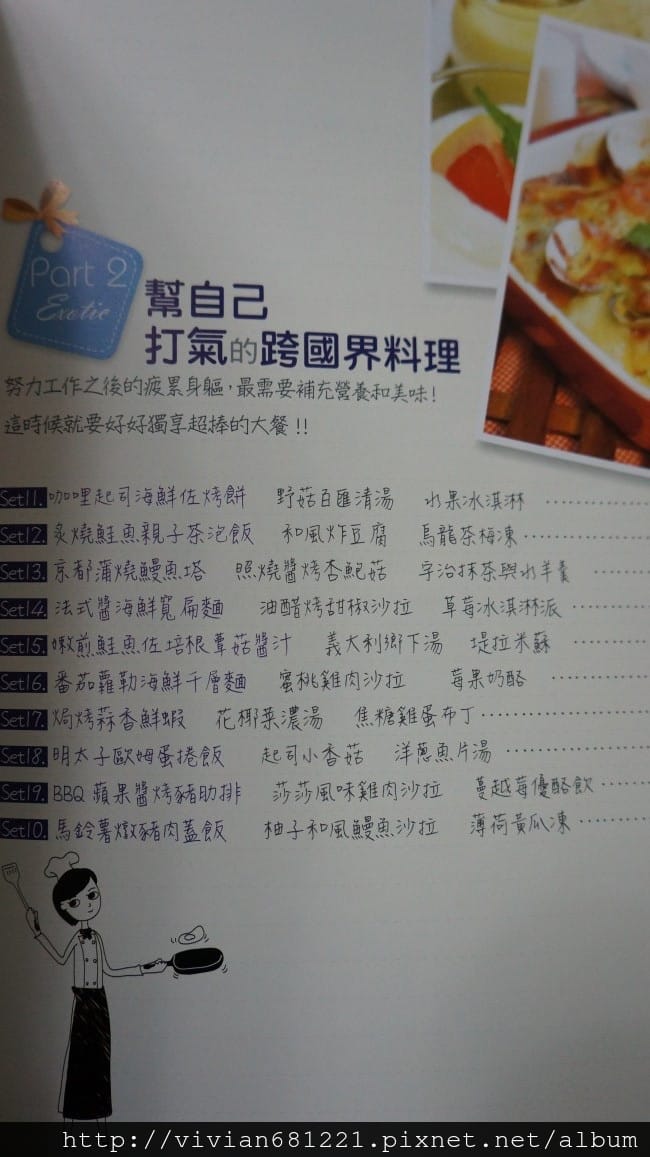 Part 2
Exotic
幫自己
打氣的跨國界料理
努力工作之後的疲累身軀，最需要補充營養和美味！
這時候就要好好獨享超棒的大餐！！
Set11. 咖哩起司海鮮佐烤餅 野菇百匯清湯 水果冰淇淋 ............
Set12. 炙燒鮭魚親子茶泡飯 和風炸豆腐 烏龍茶梅凍 ............
Set13. 京都蒲燒鰻魚塔 照燒醬烤杏鮑菇 宇治抹茶與水羊羹 ......
Set14. 法式醬海鮮寬扁麵 油醋烤甜椒沙拉 草莓冰淇淋派 ........
Set15. 嫩煎鮭魚佐培根蕈菇醬汁 義大利鄉下湯 堤拉米蘇 ........
Set16. 番茄蘿勒海鮮千層麵 蜜桃雞肉沙拉 莓果奶酪 ..........
Set17. 焗烤蒜香鮮蝦 花椰菜濃湯 焦糖雞蛋布丁 ................
Set18. 明太子歐姆蛋捲飯 起司小香菇 洋蔥魚片湯 ..............
Set19. BBQ 蘋果醬烤豬肋排 莎莎風味雞肉沙拉 蔓越莓優酪飲 ......
Set10. 馬鈴薯燉豬肉蓋飯 柚子和風鰻魚沙拉 薄荷黃瓜凍 ........
http://vivian681221.pixnet.net/album